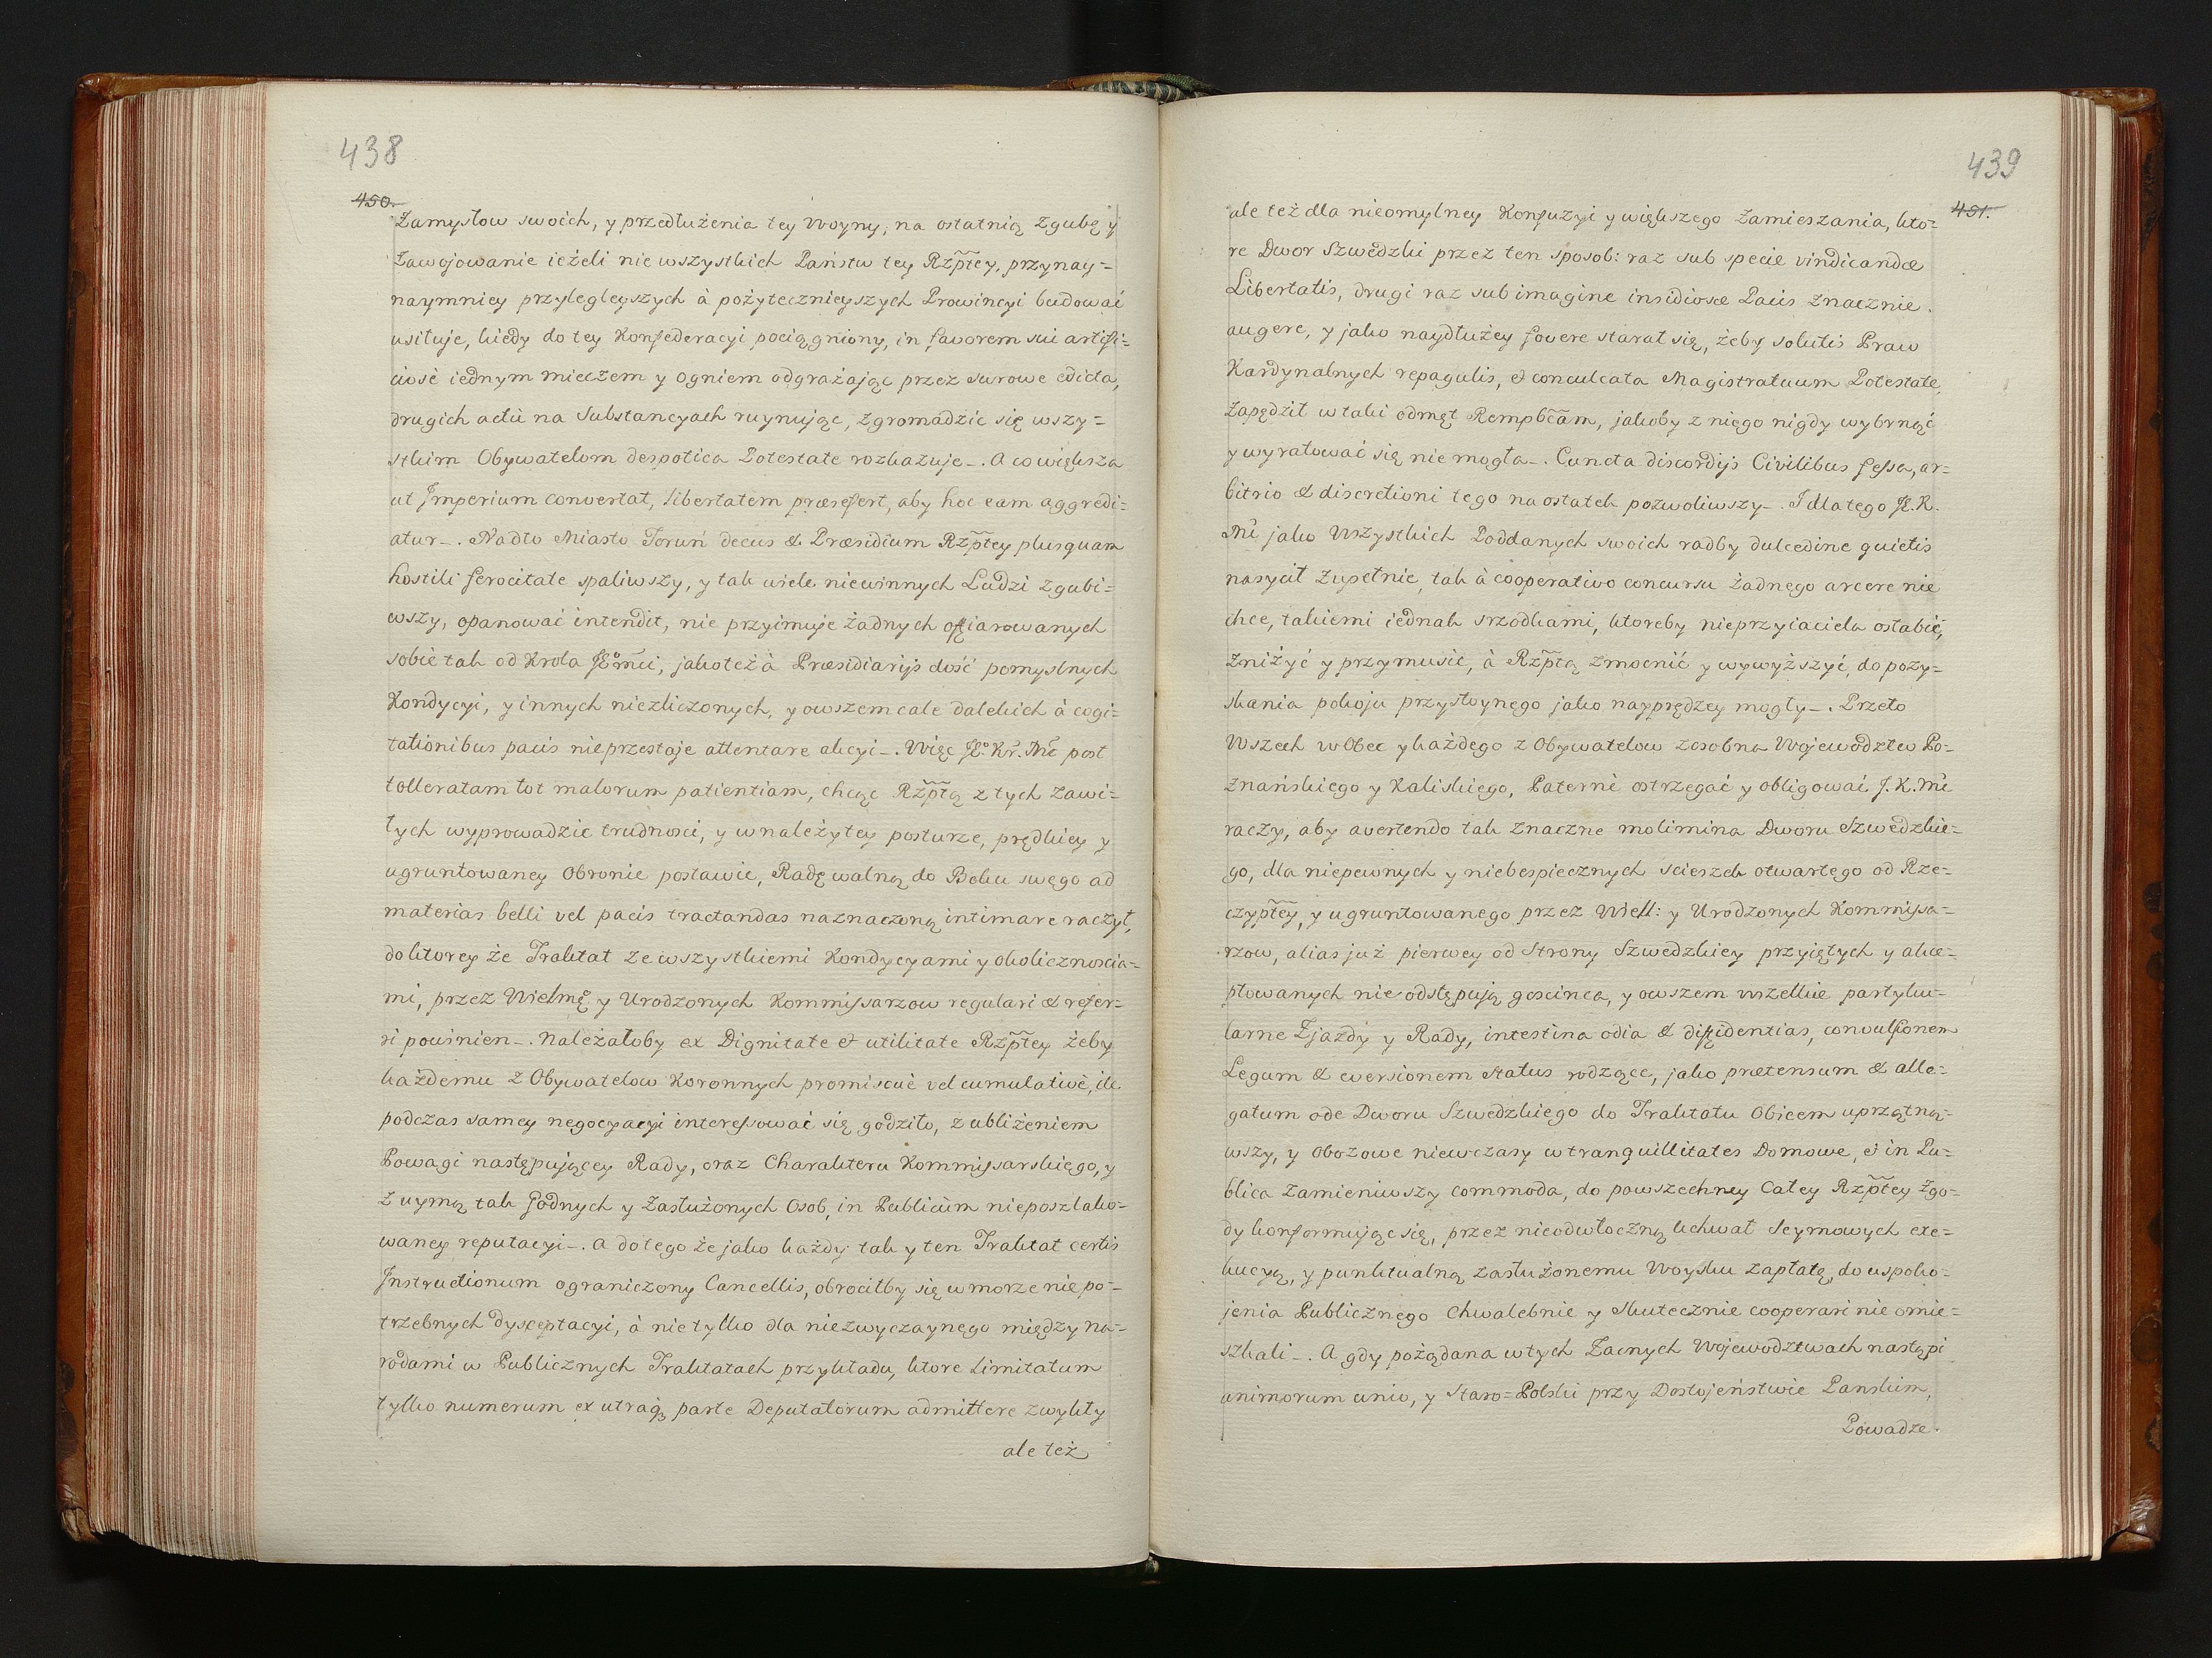 438
450.
Zamysłow swoich, y przedłużenia tey Woyny, na ostatnią Zgubę y
Zawojowanie ieżeli nie wszystkich Państw tey Rzptey, przynay=
naymniey przyległeyszych à pożytecznieyszych Prowincyi budować
usiłuje, kiedy do tey Konfederacyi pociągniony, in favorem sui artifi=
ciosè iednym mieczem y ogniem odgrażając przez surowe edicta,
drugich actu na Substancyach ruynując, zgromadzic się wszy=
stkim Obywatelom despotica Potestate rozkazuje_. A co większa
ut Imperium convertat, libertatem præsefert, aby hoc eam aggredi=
atur_. Nadto Miasto Toruń decus & Præsidium Rzptey plusquam
hostili ferocitate spaliwszy, y tak wiele niewinnych Ludzi zgubi=
wszy, opanować intendit, nie przyimuje żadnych offiarowanych
sobie tak od Krola JEomci, jako też à Præsidiarijs dość pomyslnych
Kondycyi, y innych niezliczonych, y owszem cale dalekich à cogi=
tationibus pacis nieprzestaje attentare akcyi_. Więc JEo. Kr. Mć post
tolleratam tot malorum patientiam, chcąc Rzptą z tych zawi=
łych wyprowadzic trudnosci, y w należytey posturze, prędkiey y
ugruntowaney Obronie postawic, Radę walną do Boku swego ad
materias belli vel pacis tractandas naznaczoną intimare raczył,
do ktorey że Traktat ze wszystkiemi Kondycyami y okolicznoscia=
mi, przez Wielmę y Urodzonych Kommissarzow regulari & refer=
ri powinien_. Należałoby ex Dignitate & utilitate Rzptey żeby
każdemu z Obywatelow Koronnych promiscuè vel cumulativè, ile
podczas samey negocyacyi interessować się godziło, z ubliżeniem
Powagi następującey Rady, oraz Charakteru Kommissarskiego, y
z uymą tak Godnych y Zasłużonych Osob, in Publicum nieposzlako=
waney reputacyi_. A do tego że jako każdy tak y ten Traktat certis
Instructionum ograniczony Cancellis, obrociłby się w morze niepo=
trzebnych dysceptacyi, à nie tylko dla niezwyczaynego między na=
rodami w Publicznych Traktatach przykładu, ktore limitatum
tylko numerum ex utraq3 parte Deputatorum admittere zwykły
ale też
439
451.
ale też dla nieomylney Konfuzyi y większego Zamieszania, kto=
re Dwor Szwedzki przez ten sposob: raz sub specie vindicandæ
Libertatis, drugi raz sub imagine insidiosæ Pacis znacznie
augere, y jako naydłużey fovere starał się, żeby solutis Praw
Kardynalnych repagulis, & conculcata Magistratuum Potestate,
zapędził w taki odmęt Rempbcam, jakoby z niego nigdy wybrnąć
y wyratować się nie mogła_. Cuncta discordijs Civilibus fessa, ar=
bitrio & discretioni tego na ostatek pozwoliwszy_. I dlatego JE. K.
Mć jako Wszystkich Poddanych swoich radby dulcedine quietis
nasycił zupełnie, tak à cooperativo concursu żadnego arcere nie
chce, takiemi iednak srzodkami, ktoreby nieprzyiaciela osłabić,
zniżyć y przymusic, à Rzptą zmocnić y wywyższyć, do pozy=
skania pokoju przystoynego jako nayprędzey mogły_. Przeto
Wszech w Obec y każdego z Obywatelow zosobna Wojewodztw Po=
znańskiego y Kaliskiego, Paternè ostrzegać y obligować J. K. Mć
raczy, aby avertendo tak znaczne molimina Dworu Szwedzkie=
go, dla niepewnych y niebespiecznych scieszek otwartego od Rze=
czyptey, y ugruntowanego przez Well: y Urodzonych Kommissa=
rzow, alias już pierwey od Strony Szwedzkiey przyiętych y akce=
ptowanych nie odstępują goscinca, y owszem wszelkie partyku=
larne Zjazdy y Rady, intestina odia & diffidentias, convulsionem
Legum & eversionem Status rodzące, jako prætensum & alle=
gatum ode Dworu Szwedzkiego do Traktatu Obicem uprzątną=
wszy, y Obozowe niewczasy w tranquillitates Domowe, & in Pu=
blica zamieniwszy commoda, do powszechney Całey Rzptey zgo=
dy konformując się, przez nieodwłoczną Uchwał Seymowych exe=
kucyą, y punktualną zasłużonemu Woysku zapłatę, do uspoko=
jenia Publicznego Chwalebnie y Skutecznie cooperari nie omie=
szkali_. A gdy pożądana w tych Zacnych Wojewodztwach nastąpi
animorum unio, y Staro=Polski przy Dostojeństwie Panskim,
Powadze.